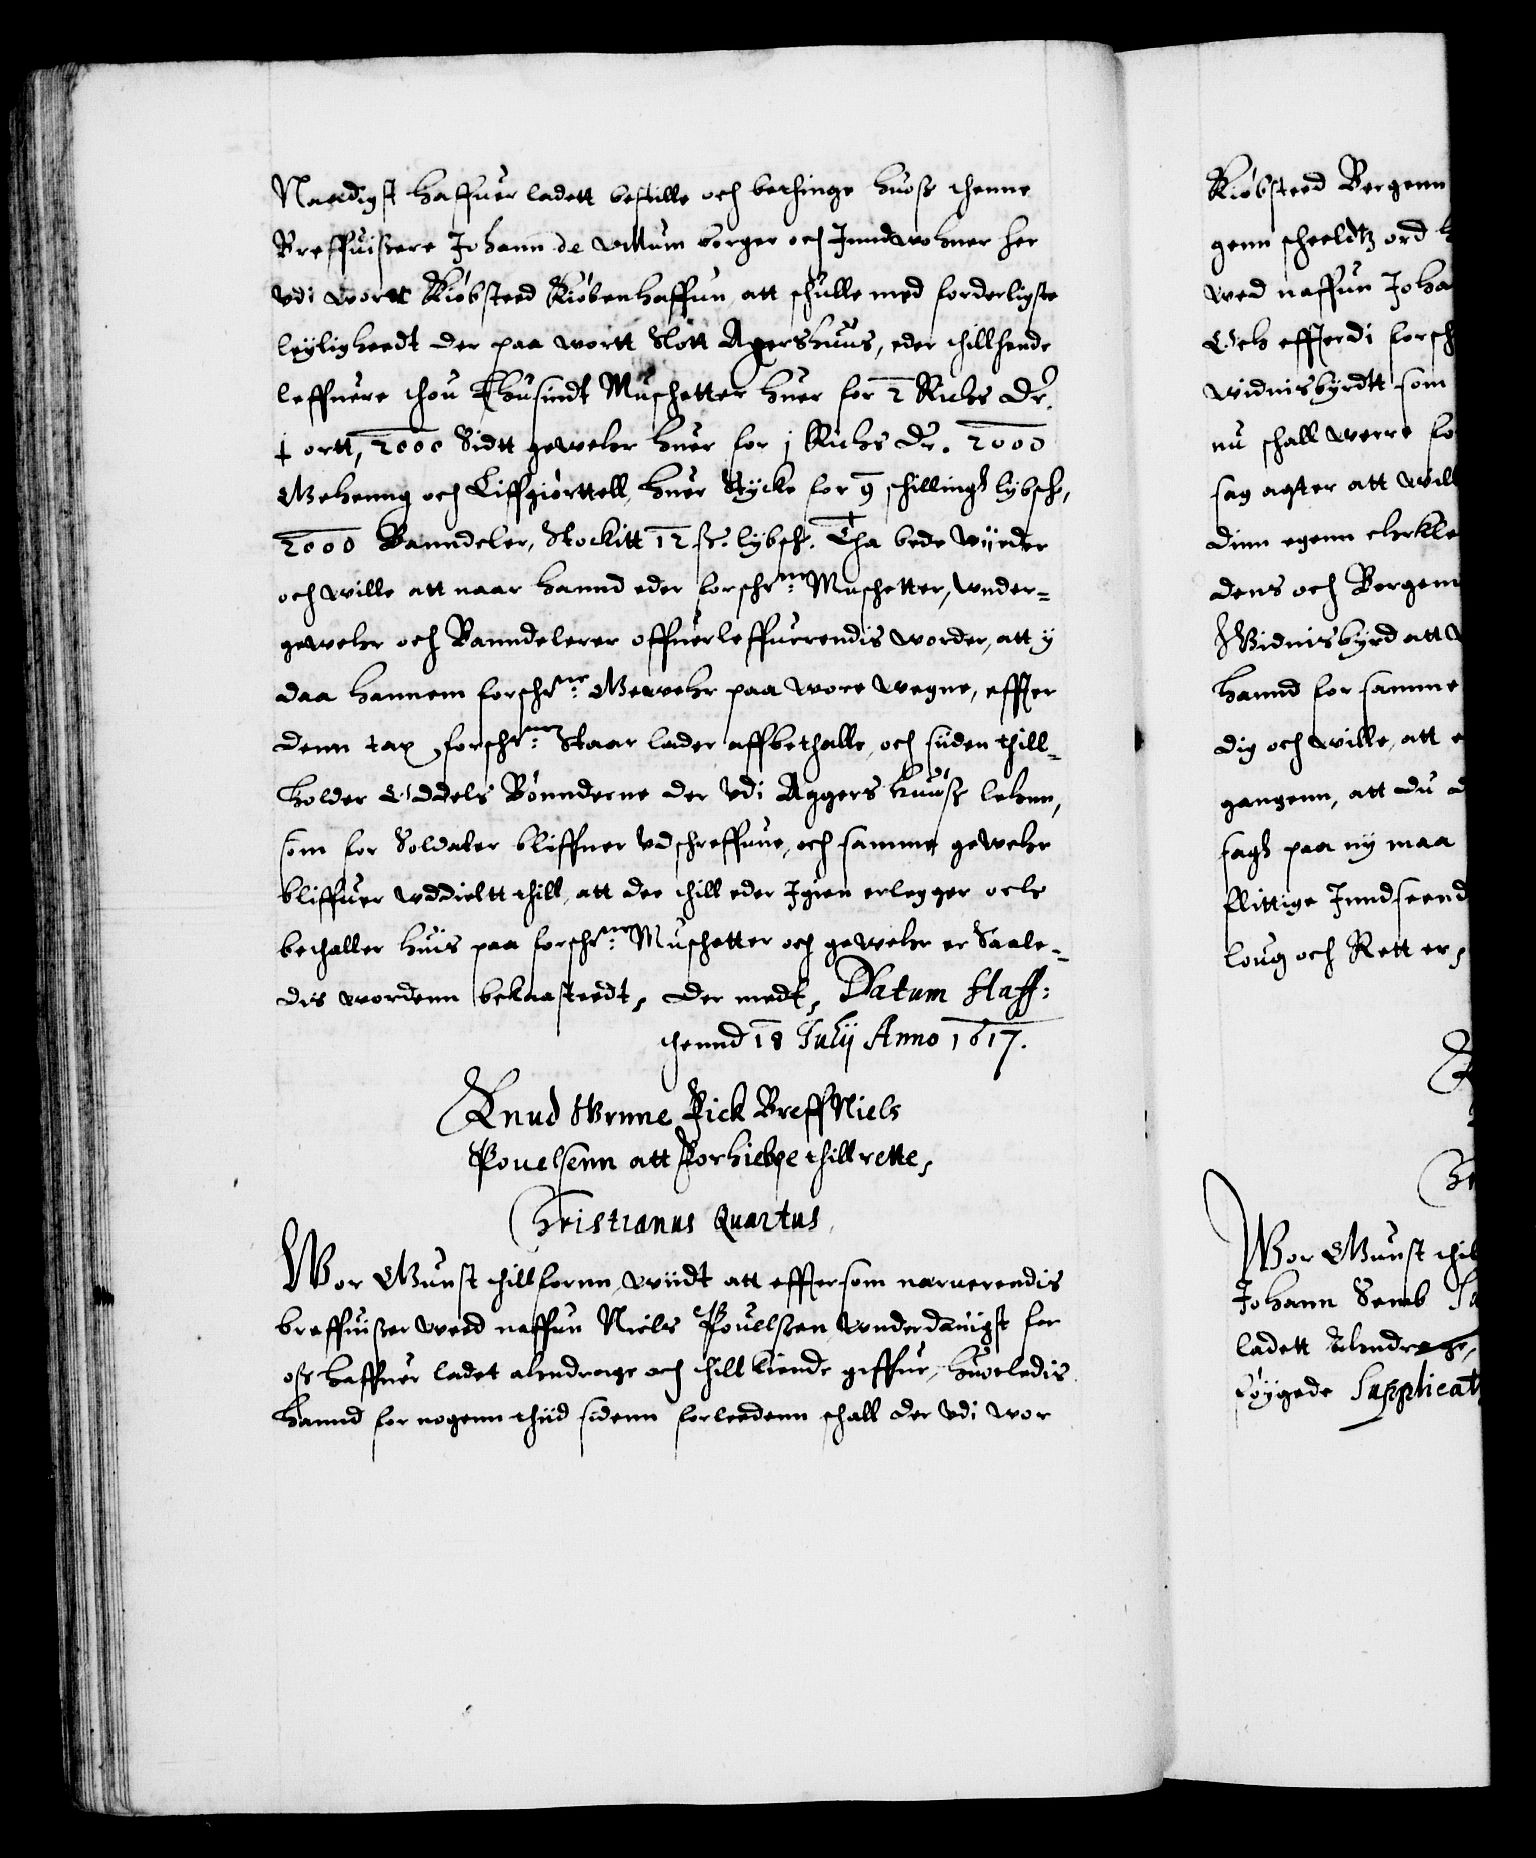 Naadigst haffuer ladett bestille och bethinge huosz thenne
Breffuiszere Johann de Willum borger och Jnndwohner her
vdi wortt Kiøbsteed Kiøbenhaffun, att schulle med forderligste
leÿligheedt der paa wortt Slott Agershuus, eder thillhende
leffuere thou Thusindt Muschetter huer for 2 Richs dr.
1 ortt, 2000 Sidtt gewehr huer for j Richs dr. 2000
Gehenng och Liffgiørttell, huer Støcke for 9 schillingh lÿbsche,
2000 Banndeler, Stockitt 12 sz. lÿbsch. Tha bede wÿ eder
och wille att naar hannd eder forschr:ne Muschetter, wnder-
gewehr och Banndelerer offuerleffuerendis worder, att ÿ
daa hannem forschr:ne Gewehr paa wore wegne, effter
denn tax forschr:ne Staar lader affbethalle, och siiden thill-
holder Oddels Bønnderne der vdi Aggers huusz lehnn,
som for Soldater bliffuer vdschreffune, och samme gewehr
bliffuer vddieltt thill, att dee thill eder Jgien erlegger och
bethaller huis paa forschr:ne Muschetter och gewehr er Saale-
dis wordenn bekaasteedt, der medt, Datum Haff:
thennd 18 Julij Anno 1617.
Knud Wrnne Fick Breff Niels
Pouelsenn att Forhielpe thill rette,
Christianus Quartus.
Wor Gunst thillfornn, wiidt att effersom næruerendis
breffuiszer weed naffun Niels Pouelszen wnderdanigst for
osz haffuer ladet ahndrage och thill kiende giffue, huoeledis
hannd for nogenn thiid sidenn forleedenn schall der vdi wor
Kiøbsteed Bergenn
genn scheeldtz ord
wed naffun Joha
Och effterdi forsch
widnisbÿrdtt som
nu schall werre fo
sag agter att will
dinn egenn
dens och Bergenn
Widnisbÿrd att
hannd for samme
dig och wille, att
gangenn, att du
sagh paa nÿ maa
flittige Jnndseend
loug och Rett er,
Wor Gunst thil
Johann Semb
ladett Ahndrage,
føÿgede Supplicat